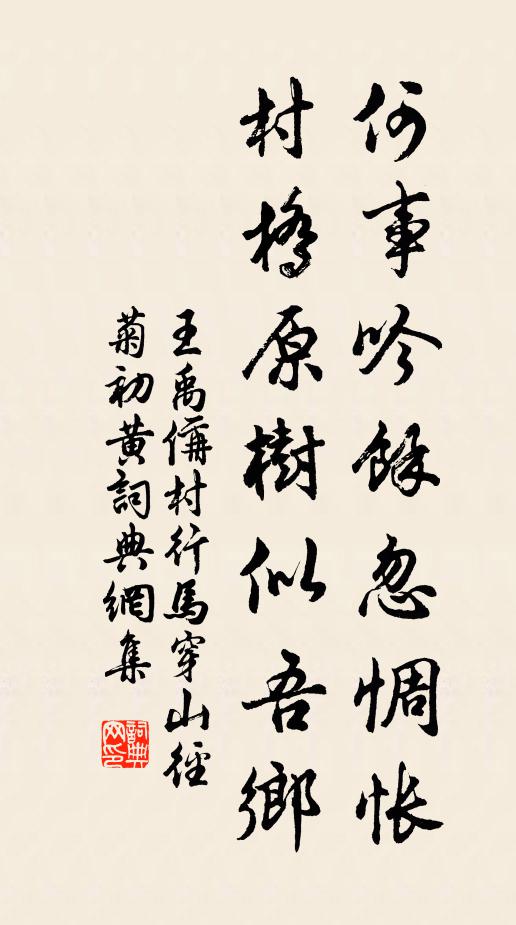 何事吟餘忽惆悵
村橋原樹似吾鄉
王禹偁村行馬穿山徑
菊初黃詞典網集
詞典
网印